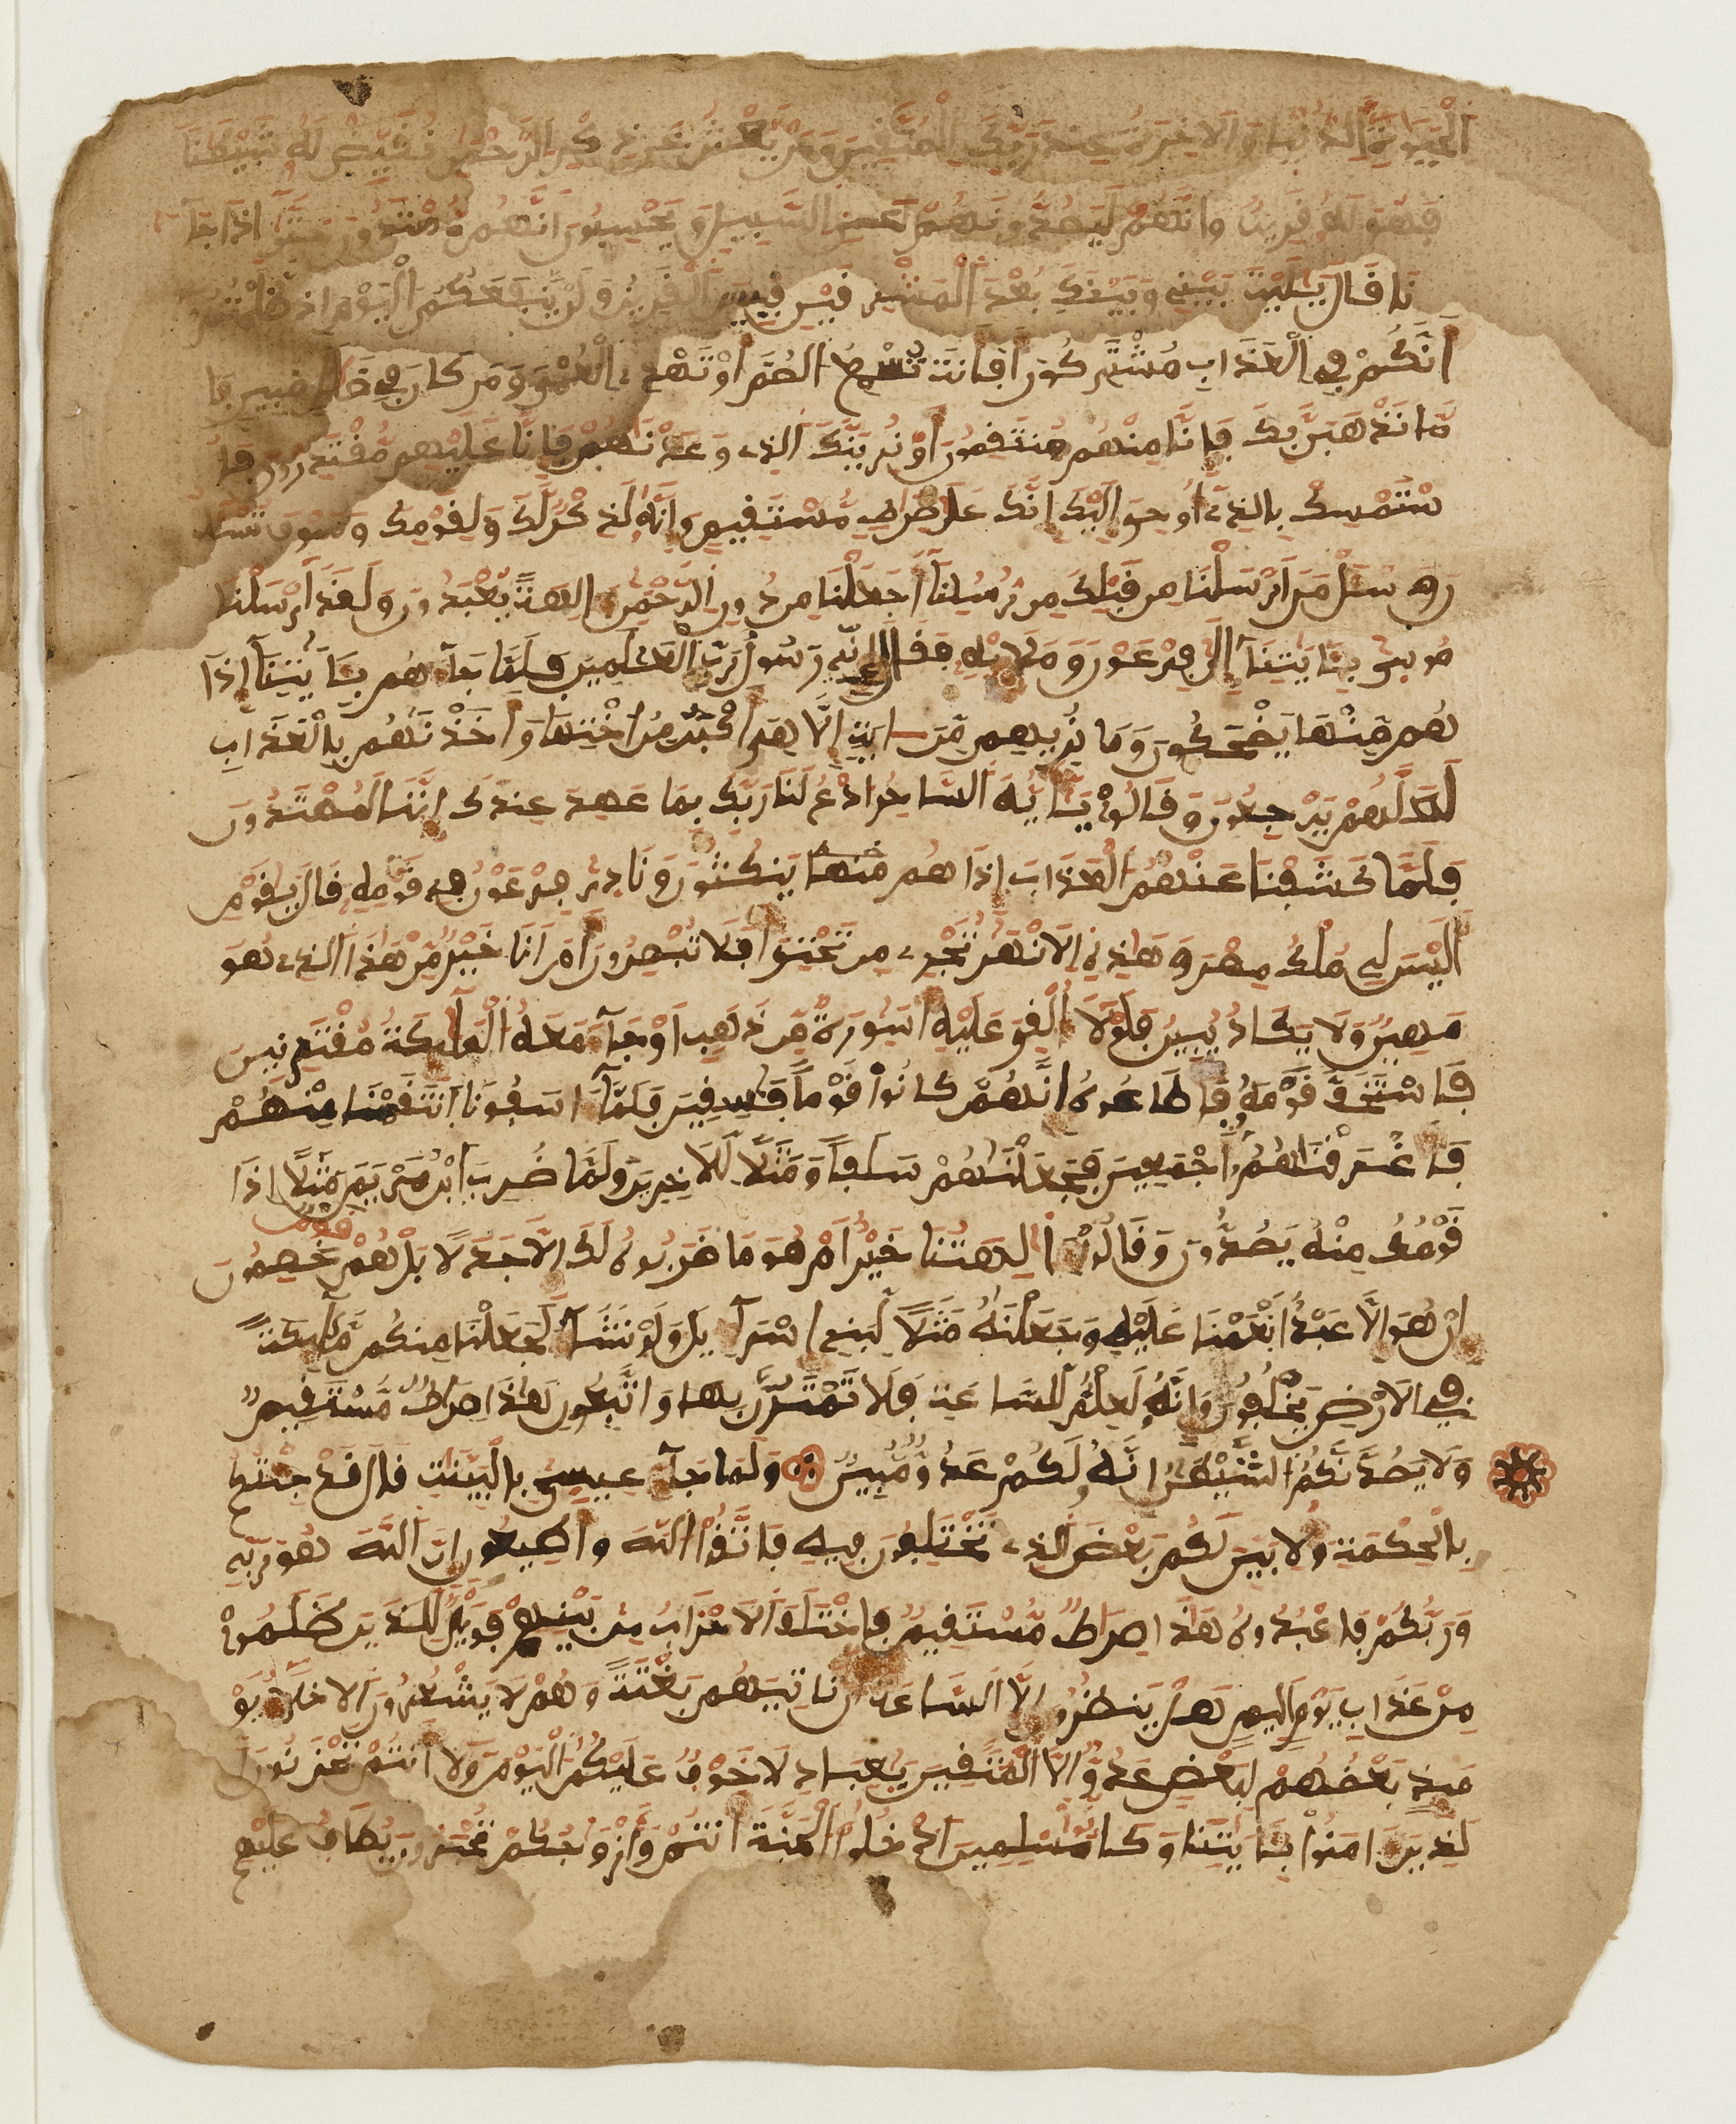 الْحَيَوٰةِ الدُّنْيَا وَالَاخِرَةُ عِندَ رَبِّكَ لِلْمُتَّقِينَ وَمَنْ يَّعْشُ عَن ذِكْرِ الرَّحْمَٰنِ نُقَيِّضْ لَهُ شَيْطَٰنًا
فَهُوَ لَهُ قَرِينٌ وَإِنَّهُمْ لَيَصُدُّونَهُمْ عَنِ السَّبِيلِ وَيَحْسِبُونَ أَنَّهُم مُّهْتَدُونَ حَتَّىٰ إِذَا جَآ
نَا قَالَ يَٰلَيْتَ بَيْنِي وَبَيْنَكَ بُعْدَ الْمَشْرِقَيْنِ فَبِيسَ الْقَرِينُ وَلَنْ يَّنفَعَكُمُ الْيَوْمَ إِذ ظَّلَمْتُمُ
أَنَّكُمْ فِي الْعَذَابِ مُشْتَرِكُونَ أَفَأَنتَ تُسْمِعُ الصُّمَّ أَوْ تَهْدِي الْعُمْيَ وَمَن كَانَ فِي ضَلَٰلٍ مُّبِينٍ فَإِ
مَّا نَذْهَبَنَّ بِكَ فَإِنَّا مِنْهُم مُّنتَقِمُونَ أَوْ نُرِيَنَّكَ الَّذِي وَعَدْنَٰهُمْ فَإِنَّا عَلَيْهِم مُّقْتَدِرُونَ فَا
سْتَمْسِكْ بِالَّذِي أُوحِيَ إِلَيْكَ إِنَّكَ عَلَىٰ صِرَٰطٍ مُّسْتَقِيمٍ وَإِنَّهُ لَذِكْرٌ لَّكَ وَلِقَوْمِكَ وَسَوْفَ تُسْـَٔلُ
ونَ وَسْـَٔلْ مَنَ اَرْسَلْنَا مِن قَبْلِكَ مِن رُّسُلِنَآ أَجَعَلْنَا مِن دُونِ الرَّحْمَٰنِ ءَالِهَةً يُعْبَدُونَ وَلَقَدَ اَرْسَلْنَا
مُوسَىٰ بِـَٔايَٰتِنَآ إِلَىٰ فِرْعَوْنَ وَمَلَإِيْهِ فَقَالَ إِنِّي رَسُولُ رَبِّ الْعَٰلَمِينَ فَلَمَّا جَآءَهُم بِـَٔايَٰتِنَآ إِذَا
هُم مِّنْهَا يَضْحَكُونَ وَمَا نُرِيهِم مِّنَ ايَةٍ اِلَّا هِيَ أَكْبَرُ مِنُ اخْتِهَا وَأَخَذْنَٰهُم بِالْعَذَابِ
لَعَلَّهُمْ يَرْجِعُونَ وَقَالُوا يَٰٓأَيُّهَ السَّاحِرُ ادْعُ لَنَا رَبَّكَ بِمَا عَهِدَ عِندَكَ إِنَّنَا لَمُهْتَدُونَ
فَلَمَّا كَشَفْنَا عَنْهُمُ الْعَذَابَ إِذَا هُم مِّنْهَا يَنكُثُونَ وَنَادَىٰ فِرْعَوْنُ فِي قَوْمِهِ قَالَ يَٰقَوْمِ
أَلَيْسَ لِي مُلْكُ مِصْرَ وَهَٰذِهِ الَانْهَٰرُ تَجْرِي مِن تَحْتِيَ أَفَلَا تُبْصِرُونَ أَمَ اَنَا خَيْرٌ مِّنْ هَٰذَا الَّذِي هُوَ
مَهِينٌ وَلَا يَكَادُ يُبِينُ فَلَوْلَآ أُلْقِيَ عَلَيْهِ أَسَٰوِرَةٌ مِّن ذَهَبٍ اَوْ جَآءَ مَعَهُ الْمَلَٰٓئِكَةُ مُقْتَرِنِينَ
فَاسْتَخَفَّ قَوْمَهُ فَأَطَاعُوهُ إِنَّهُمْ كَانُوا قَوْمًا فَٰسِقِينَ فَلَمَّآ ءَاسَفُونَا اَنتَقَمْنَا مِنْهُمْ
فَأَغْرَقْنَٰهُمُ أَجْمَعِينَ فَجَعَلْنَٰهُمْ سَلَفًا وَمَثَلًا لِّلَاخِرِينَ وَلَمَّا ضُرِبَ ابْنُ مَرْيَمَ مَثَلًا إِذَا
قَوْمُكَ مِنْهُ يَصُدُّونَ وَقَالُوا ءَأَٰلِهَتُنَا خَيْرٌ أَمْ هُوَ مَا ضَرَبُوهُ لَكَ إِلَّا جَدَلًا بَلْ هُمْ قَوْمٌ خَصِمُونَ
إِنْ هُوَ إِلَّا عَبْدٌ أَنْعَمْنَا عَلَيْهِ وَجَعَلْنَٰهُ مَثَلًا لِّبَنِي إِسْرَآءِيلَ وَلَوْ نَشَآءُ لَجَعَلْنَا مِنكُم مَّلَٰٓئِكَةً
فِي الَارْضِ يَخْلُفُونَ وَإِنَّهُ لَعِلْمٌ لِّلسَّاعَةِ فَلَا تَمْتَرُنَّ بِهَا وَاتَّبِعُونِ هَٰذَا صِرَٰطٌ مُّسْتَقِيمٌ
وَلَا يَصُدَّنَّكُمُ الشَّيْطَٰنُ إِنَّهُ لَكُمْ عَدُوٌّ مُّبِينٌ وَلَمَّا جَآءَ عِيسَىٰ بِالْبَيِّنَٰتِ قَالَ قَدْ جِئْتُكُم
بِالْحِكْمَةِ وَلِأُبَيِّنَ لَكُم بَعْضَ الَّذِي تَخْتَلِفُونَ فِيهِ فَاتَّقُوا اللَّهَ وَأَطِيعُونِ إِنَّ اللَّهَ هُوَ رَبِّي
وَرَبُّكُمْ فَاعْبُدُوهُ هَٰذَا صِرَٰطٌ مُّسْتَقِيمٌ فَاخْتَلَفَ الَاحْزَابُ مِن بَيْنِهِمْ فَوَيْلٌ لِّلَّذِينَ ظَلَمُوا
مِنْ عَذَابِ يَوْمٍ اَلِيمٍ هَلْ يَنظُرُونَ إِلَّا السَّاعَةَ أَن تَاتِيَهُم بَغْتَةً وَهُمْ لَا يَشْعُرُونَ الَاخِلَّآءُ يَوْ
مَئِذٍ بَعْضُهُمْ لِبَعْضٍ عَدُوٌّ اِلَّا الْمُتَّقِينَ يَٰعِبَادِ لَا خَوْفٌ عَلَيْكُمُ الْيَوْمَ وَلَآ أَنتُمْ تَحْزَنُونَ ا
لَّذِينَ ءَامَنُوا بِـَٔايَٰتِنَا وَكَانُوا مُسْلِمِينَ ادْخُلُوا الْجَنَّةَ أَنتُمْ وَأَزْوَٰجُكُمْ تُحْبَرُونَ يُطَافُ عَلَيْهِم